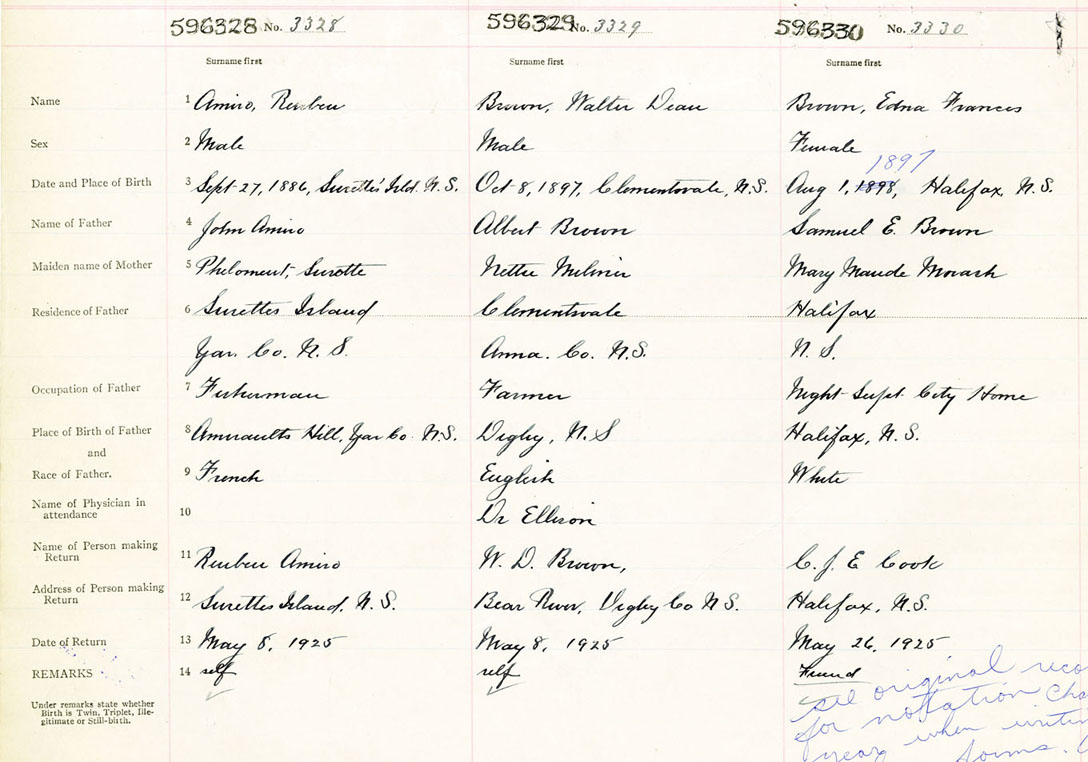 596328 No. 3328 596329 No. 3329 596330 No. 3330
Surname first Surname first Surname first
Name 1 Amiro, Reuben Brown, Walter Dean Brown, Edna Frances
Sex 2 Male Male Female
1897
Date and Place of Birth 3 Sept 27, 1886, Surette's Isld. N.S. Oct 8, 1897, Clementsvale, N.S. Aug 1, 1898, Halifax, N.S.
Name of Father 4 John Amiro Albert Brown Samuel E. Brown
Maiden name of Mother 5 Surette Nettie Mary Maude
Residence of Father 6 Surettes Island Clementsvale Halifax
Yar. Co. N.S. Anna. Co. N.S. N.S.
Occupation of Father 7 Fisherman Farmer Night Supt City Home
Place of Birth of Father 8 Amiraults Hill, Yar Co. N.S. Digby, N.S Halifax, N.S.
and
Race of Father. 9 French English White
Name of Physician in
attendance 10 Dr Ellison
Name of Person making
Return 11 Reuben Amiro W. D. Brown, C. J. E Cook
Address of Person making
Return 12 Surettes Island, N.S. Bear River, Digby Co N.S. Halifax, N.S.
Date of Return 13 May 8, 1925 May 8, 1925 May 26, 1925
REMARKS 14 self self Friend
see original reco
Under remarks state whether
Birth is Twin, Triplet, Ille-
gitimate or Still-birth.
for notation cha
year when writin
forms.